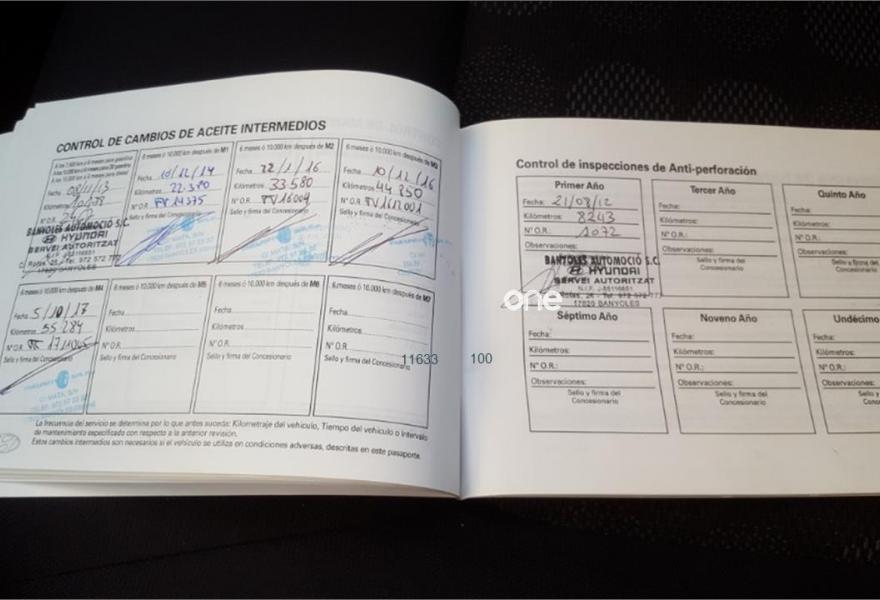 CONTROL DE CAMBIOS DE ACEITE INTERMEDIOS
Fecha 08/11/13
Kilómetros
Nº O.R.
BANYOLES AUTOMOCIÓ S.C.
HYUNDAI
SERVEI AUTORITZAT
17820 BANYOLES
6 meses ó 10.000 km después de M1
Fecha 10/12/14
Kilómetros 22.380
Nº O.R. TV 14375
Sello y firma del Concesionario
6 meses ó 10.000 km después de M2
Fecha 22/1/16
Kilómetros 33.580
Nº O.R. TV16004
Sello y firma del Concesionario
6 meses ó 10.000 km después de M3
Fecha 10/12/16
Kilómetros 44.850
Nº O.R. TV1612001
Sello y firma del Concesionario
6 meses ó 10.000 km después de M4
Fecha 5/10/17
Kilómetros 55.284
Nº O.R.
Sello y firma del Concesionario
6 meses ó 10.000 km después de M5
Fecha
Kilómetros
Nº O.R.
Sello y firma del Concesionario
6 meses ó 10.000 km después de M6
Fecha
Kilómetros
Nº O.R.
Sello y firma del Concesionario
6 meses ó 10.000 km después de M7
Fecha
Kilómetros
Nº O.R.
Sello y firma del Concesionario
La frecuencia del servicio se determina por lo que antes suceda: Kilometraje del vehículo, Tiempo del vehículo o Intervalo
de mantenimiento especificado con respecto a la anterior revisión.
Estos cambios intermedios son necesarios si el vehículo se utiliza en condiciones adversas, descritas en este pasaporte.
11633 100
Control de inspecciones de Anti-perforación
Primer Año
Fecha: 21/08/12
Kilómetros: 8243
Nº O.R.: 1072
Observaciones:
BANYOLES AUTOMOCIÓ S.C.
HYUNDAI
SERVEI AUTORITZAT
17820 BANYOLES
one
Tercer Año
Fecha:
Kilómetros:
Nº O.R.:
Observaciones:
Sello y firma del
Concesionario
Quinto Año
Fecha:
Kilómetros:
Nº O.R.:
Observaciones:
Sello y firma del
Concesionario
Séptimo Año
Fecha:
Kilómetros:
Nº O.R.:
Observaciones:
Sello y firma del
Concesionario
Noveno Año
Fecha:
Kilómetros:
Nº O.R.:
Observaciones:
Sello y firma del
Concesionario
Undécimo
Fecha:
Kilómetros:
Nº O.R.:
Observaciones:
Sello y
Conces